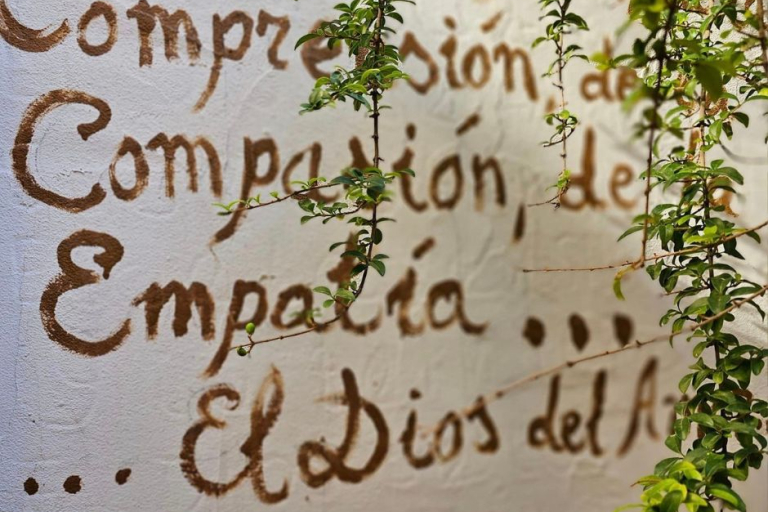 Comprensión, de
Compasión, de
Empatía ...
... El Dios del